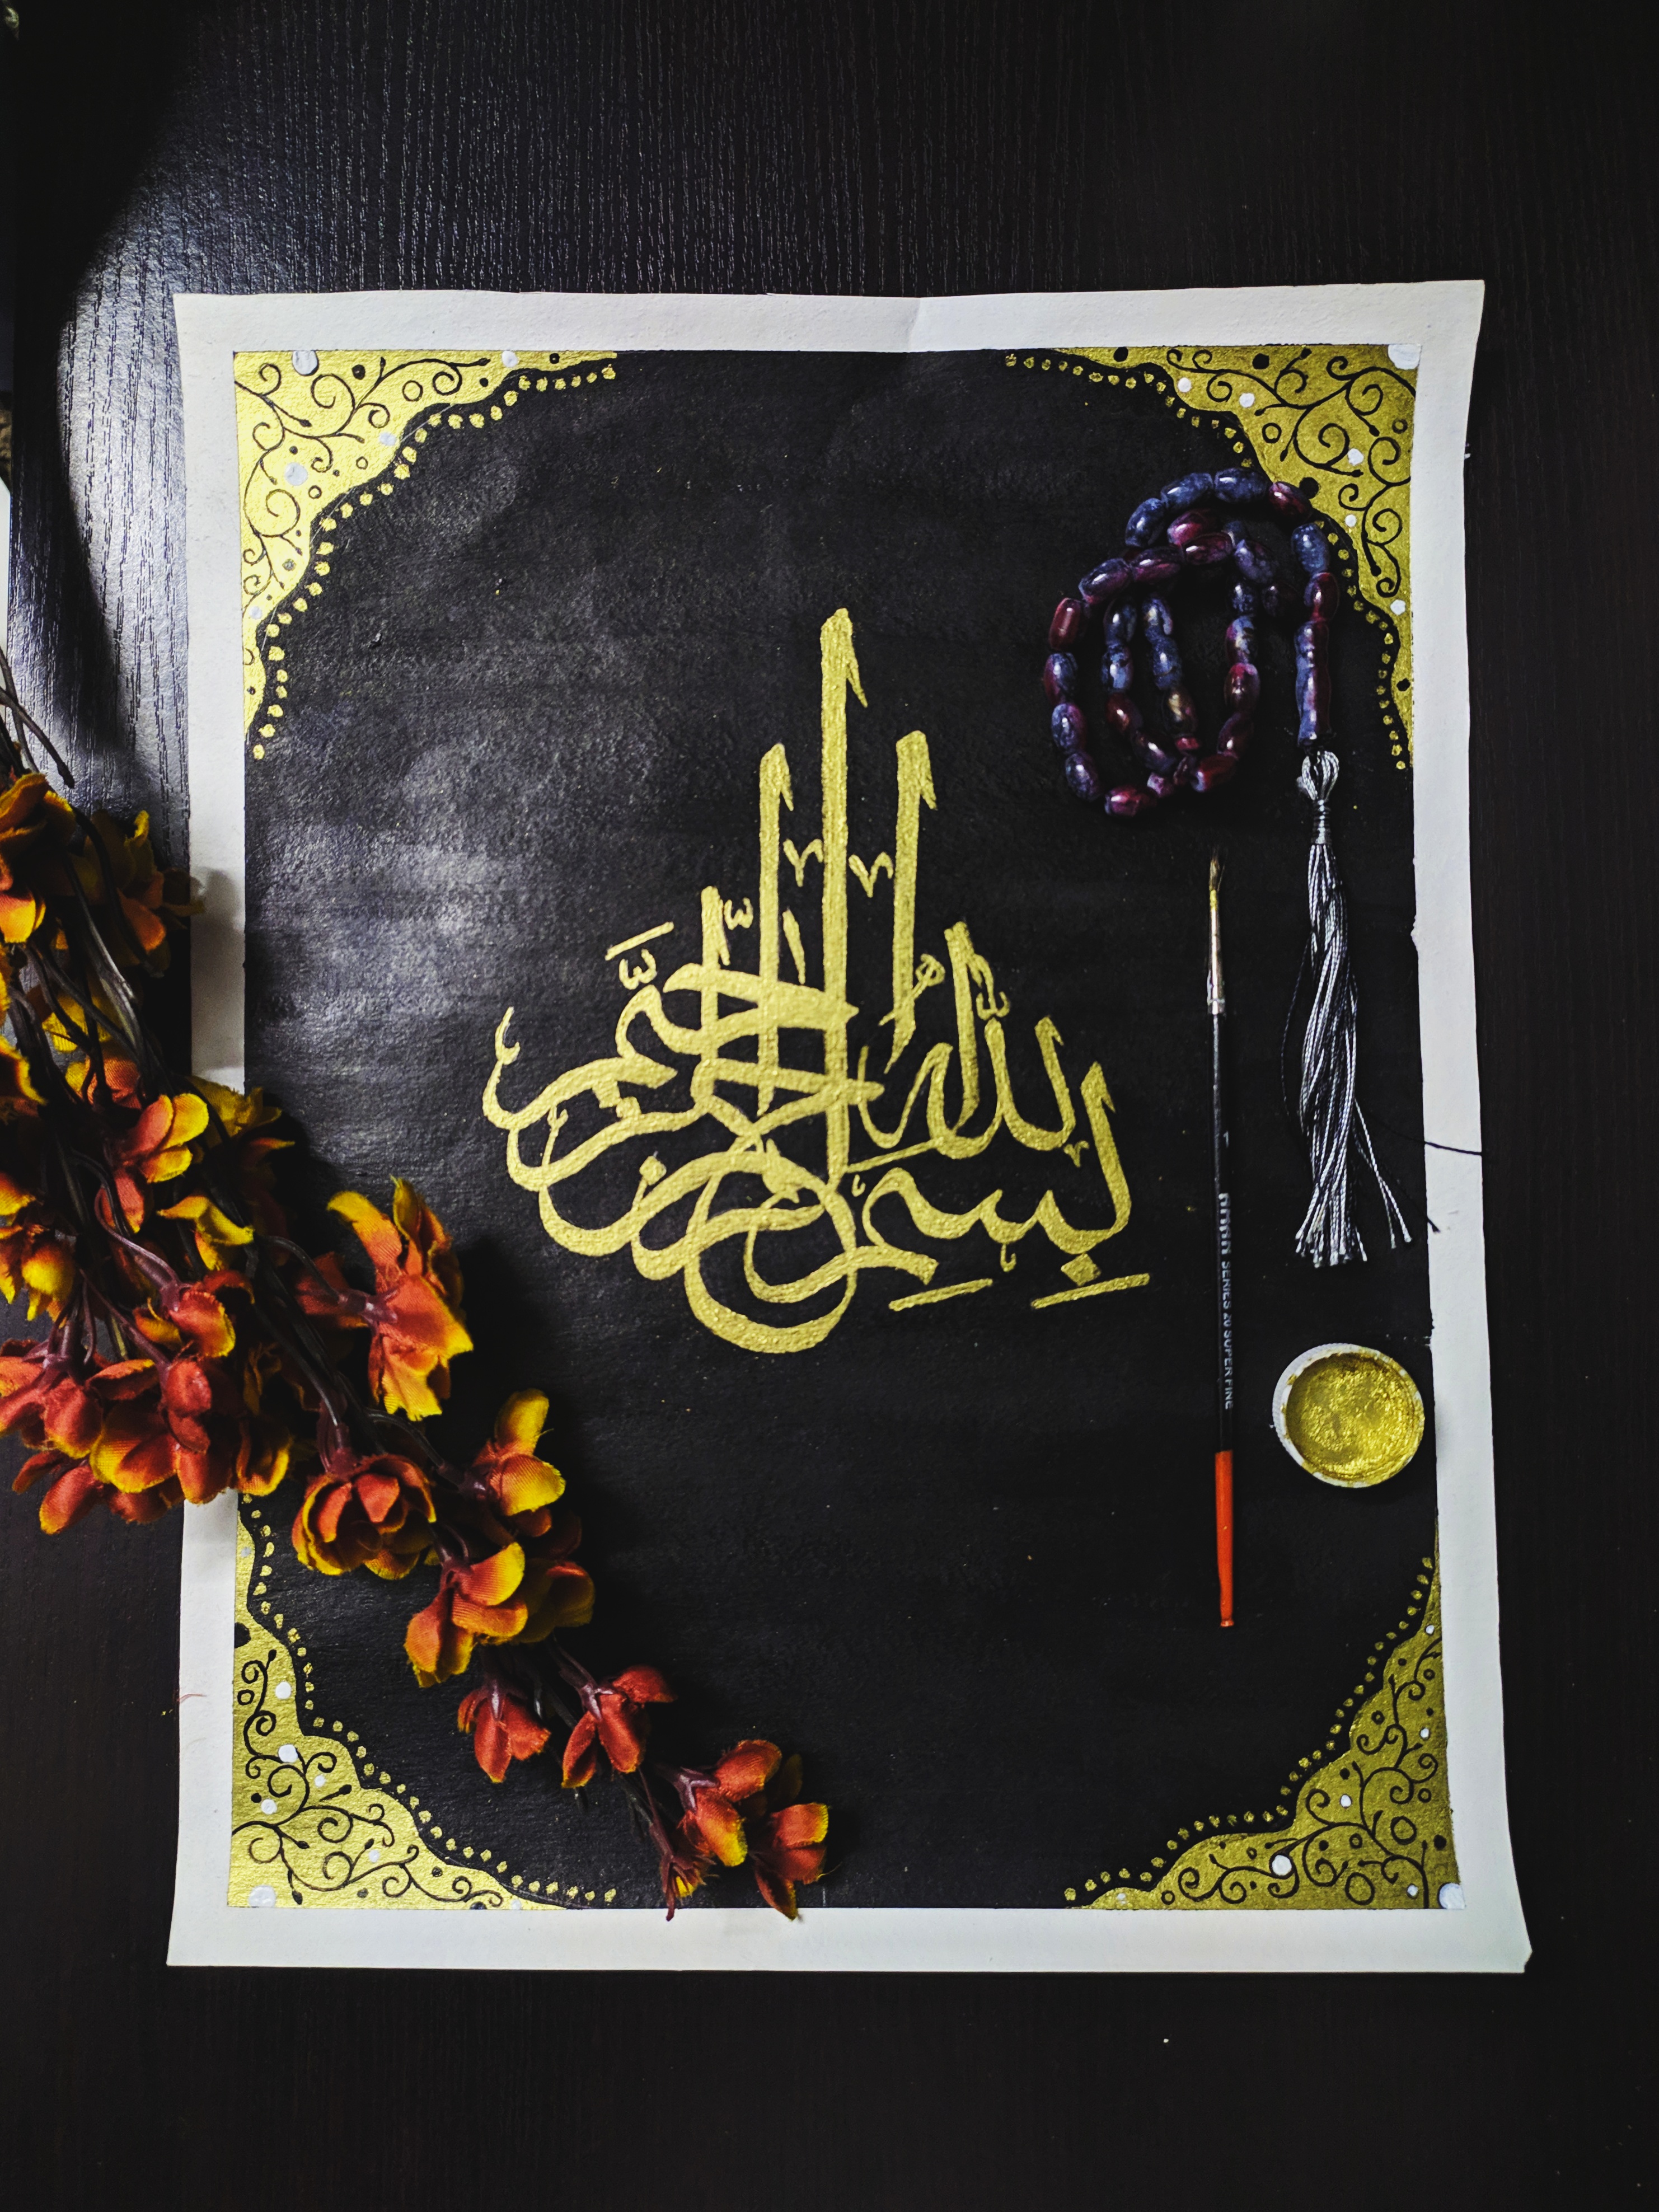 بِسْمِ اللّٰهِ الرَّحْمٰنِ الرَّحِيْمِ
SERIES 20 SUPER FINE